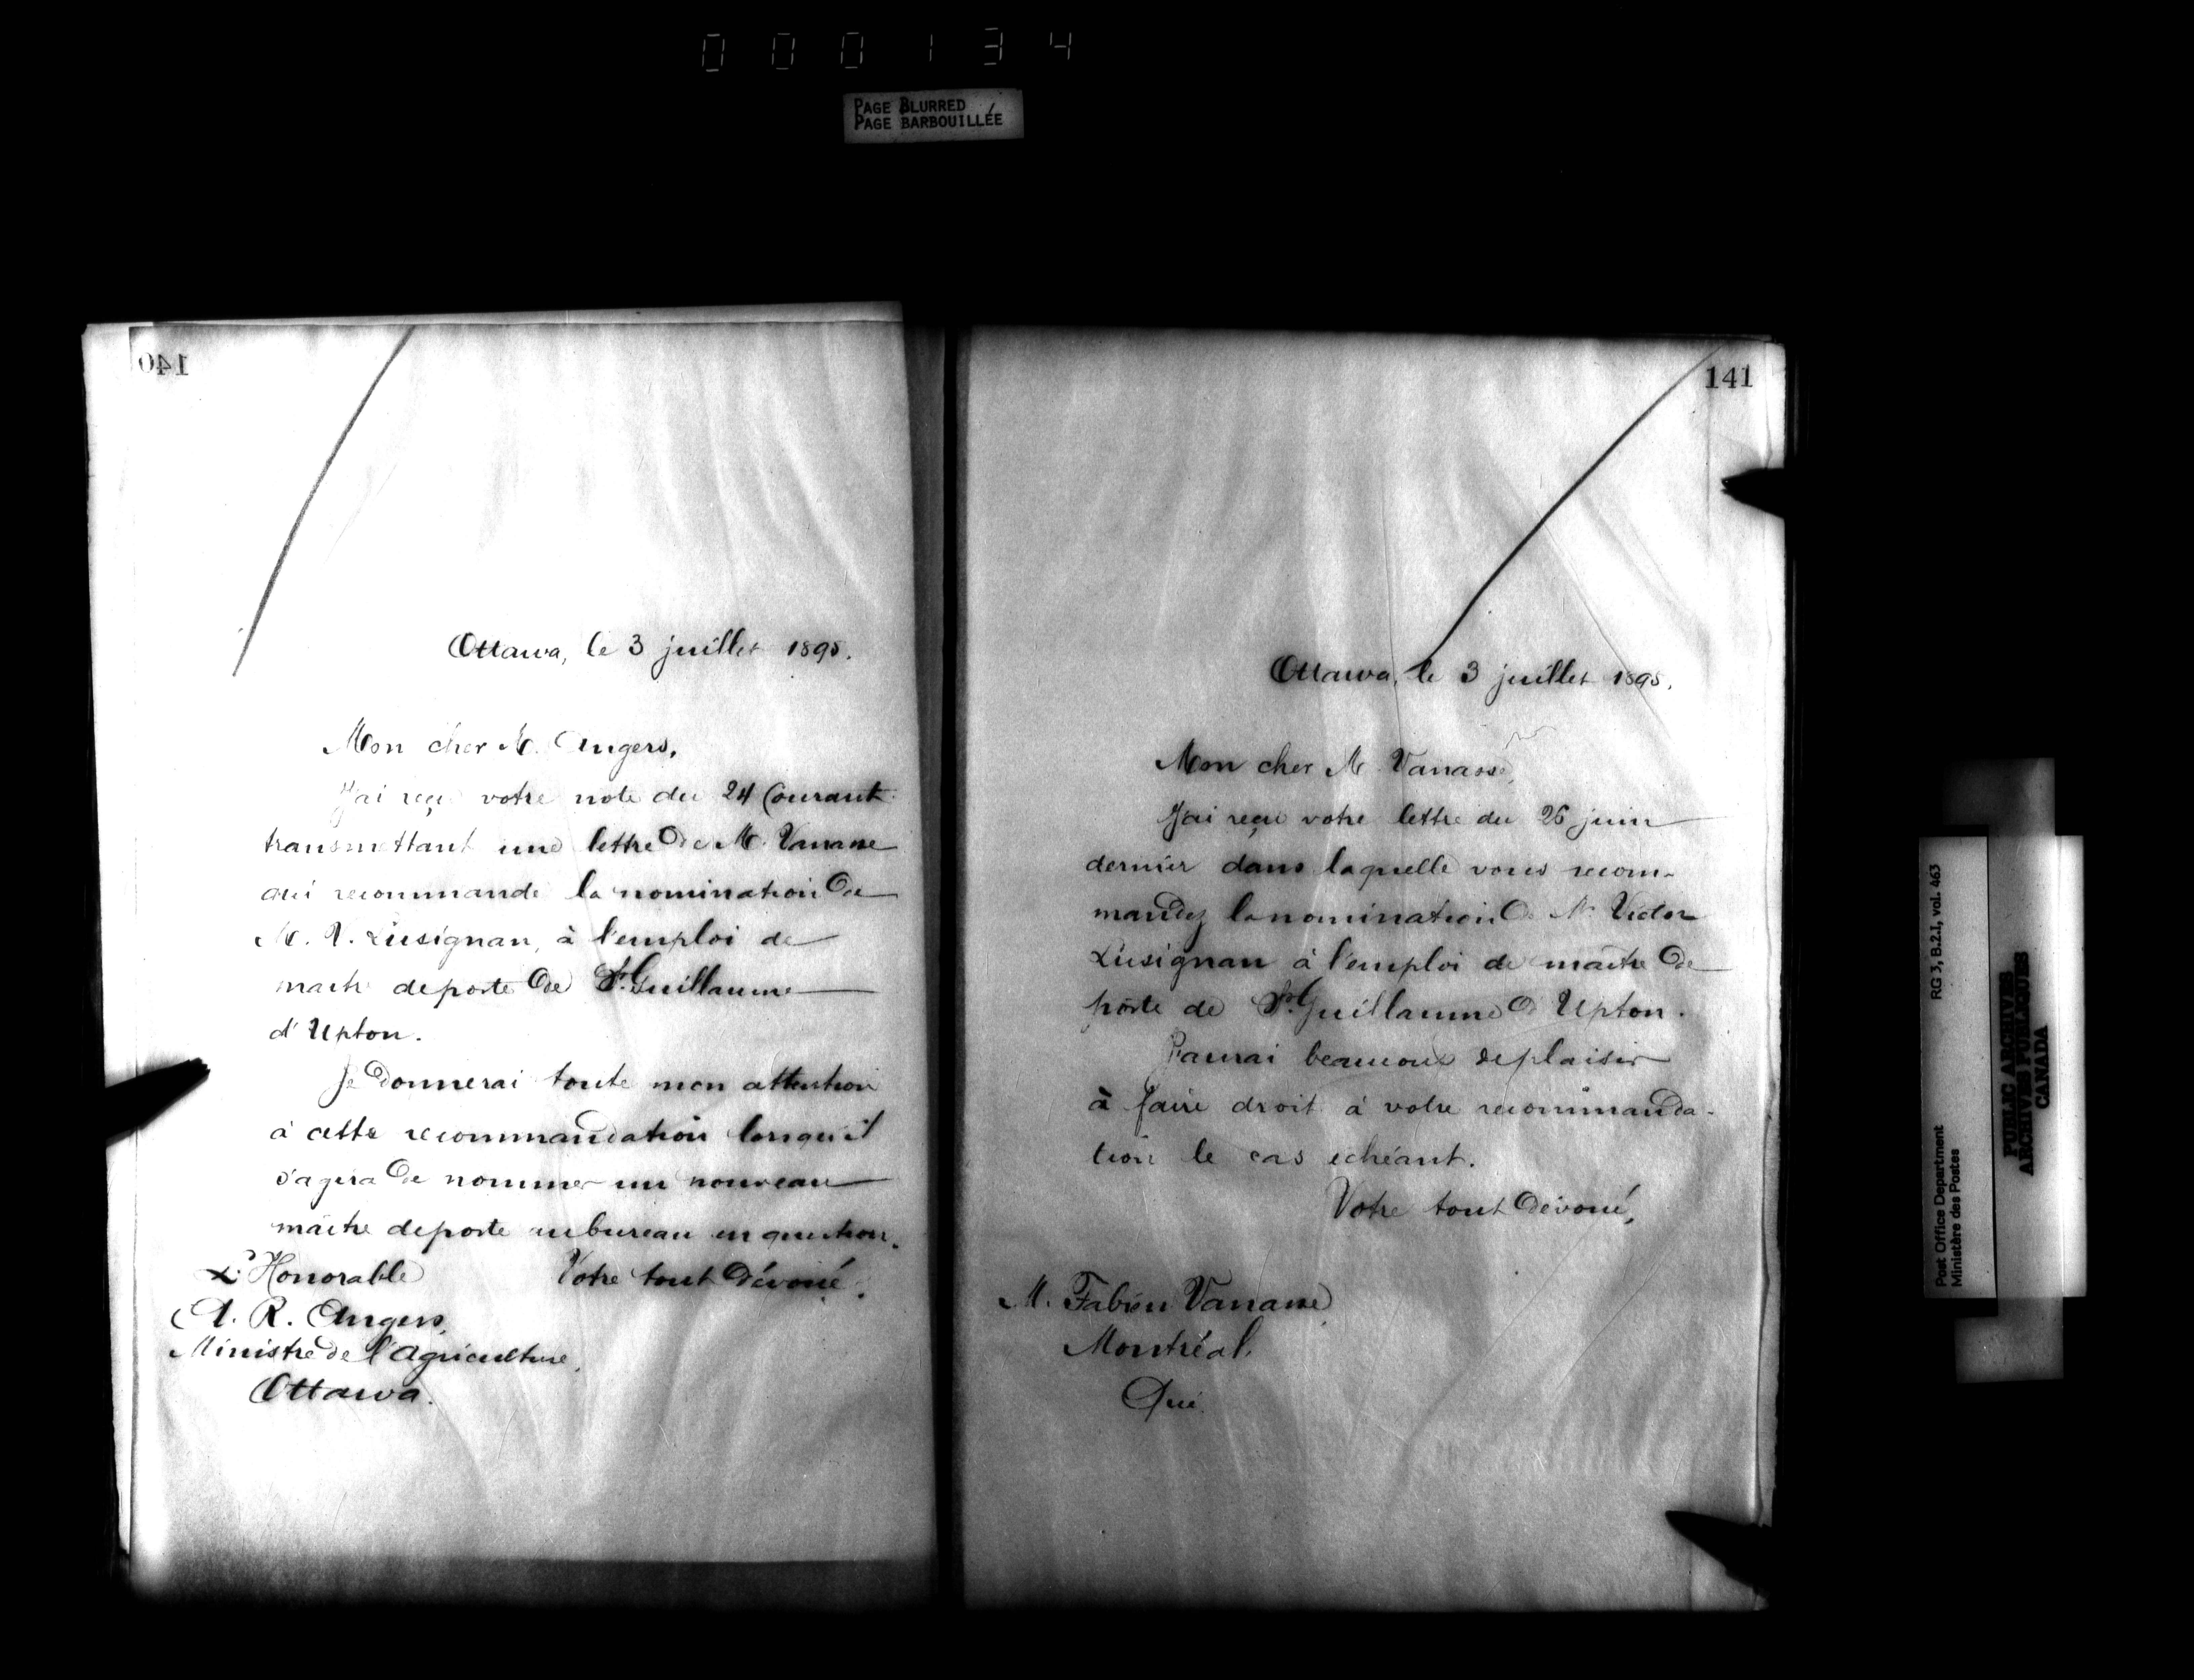 000134
PAGE BLURRED
PAGE BARBOUILLÉE
140
Ottawa, le 3 juillet 1895.
Mon cher M. Angers,
J'ai reçu votre note du 24 Courant
transmettant une lettre de M. Vanasse
qui recommande la nomination de
M. V. Lusignan, à l'emploi de
maitre de poste de St. Guillaume
d'Upton.
Je donnerai toute mon attention
à cette recommandation lorsqu'il
s'agira de nommer un nouveau
maître de poste au bureau en question.
L'Honorable Votre tout dévoué.
A. R. Angers,
Ministre de l'Agriculture,
Ottawa.
141
Ottawa, le 3 juillet 1895.
Mon cher M. Vanasse,
J'ai reçu votre lettre du 26 juin
dernier dans laquelle vous recom-
mandez la nomination de M. Victor
Lusignan à l'emploi de maitre de
poste de St. Guillaume d'Upton.
J'aurai beaucoup de plaisir
à faire droit à votre recommanda-
tion le cas echéant.
Votre tout dévoué,
M. Fabien Vanasse,
Montréal,
Qué.
Post Office Department RG 3, B.2.I, vol. 463
Ministère des Postes
PUBLIC ARCHIVES
ARCHIVES PUBLIQUES
CANADA